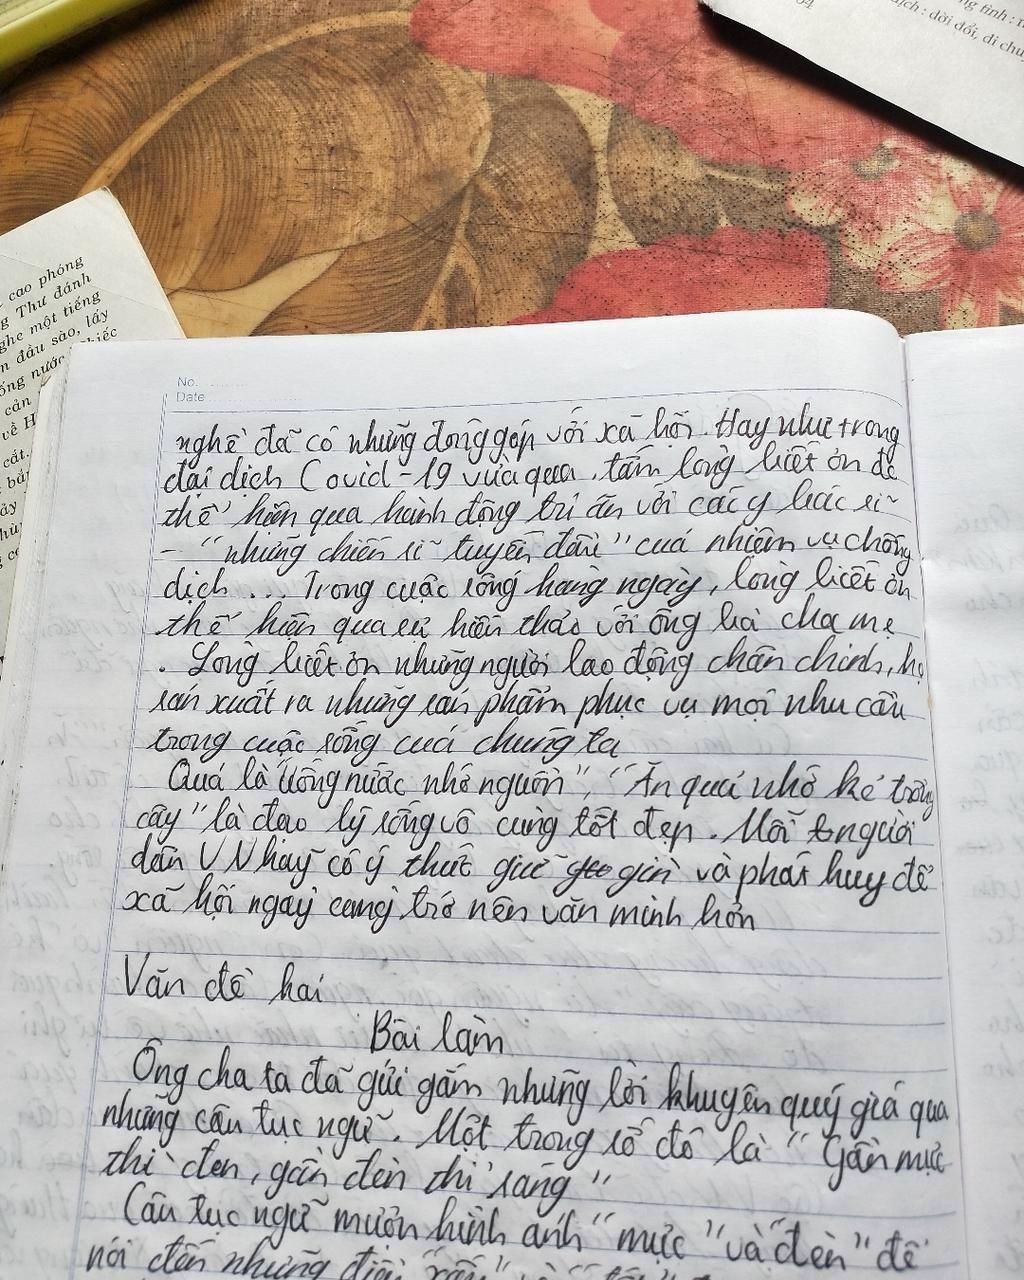 ng tình : t
04
dịch : dời đổi, di chu
cao phóng
g Thư đánh
ghe một tiếng
n đầu sào, lấy
ống nước, chiếc
cản
về H
cát.
No.
Date
nghề đã có những đóng góp với xã hội. Hay như trong
đại dịch Covid-19 vừa qua, tấm lòng biết ơn đó
thể hiện qua hành động tri ân với các y bác sĩ
- "những chiến sĩ tuyến đầu" của nhiệm vụ chống
dịch... Trong cuộc sống hàng ngày, lòng biết ơn
thể hiện qua sự hiếu thảo với ông bà cha mẹ
. Lòng biết ơn những người lao động chân chính, họ
sản xuất ra những sản phẩm phục vụ mọi nhu cầu
trong cuộc sống của chúng ta
Quả là "Uống nước nhớ nguồn" "Ăn quả nhớ kẻ trồng
cây" là đạo lý sống vô cùng tốt đẹp. Mỗi người
dân VN hãy có ý thức giữ gìn và phát huy để
xã hội ngày càng trở nên văn minh hơn
Vấn đề hai
Bài làm
Ông cha ta đã gửi gắm những lời khuyên quý giá qua
những câu tục ngữ. Một trong số đó là "Gần mực
thì đen, gần đèn thì sáng"
Câu tục ngữ mượn hình ảnh "mực" và "đèn" để
nói đến những điều "xấu" và "tốt"